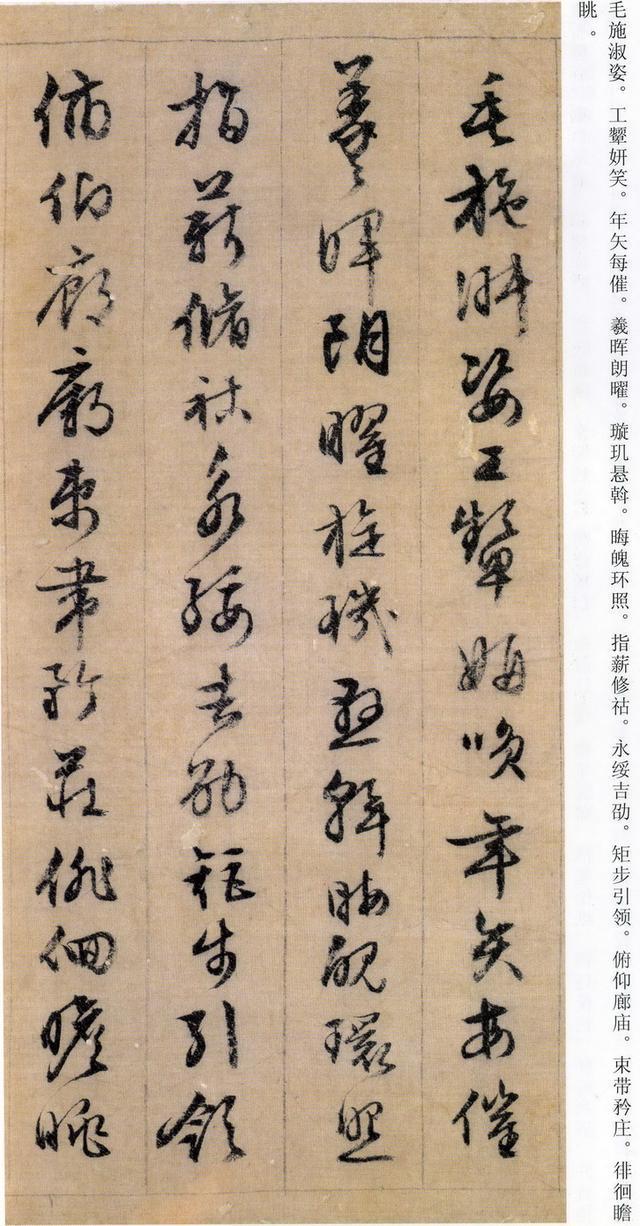 毛施淑姿。工颦妍笑。年矢每催。羲晖朗曜。璇玑悬斡。晦魄环照。指薪修祜。永绥吉劭。矩步引领。俯仰廊庙。束带矜庄。徘徊瞻
眺。
毛施淑姿工顰妍咲年矢每催
羲暉朗曜旋璣懸斡晦魄環照
指薪脩祜永綏吉劭矩步引領
俯仰廊廟束帶矜莊俳佪瞻眺